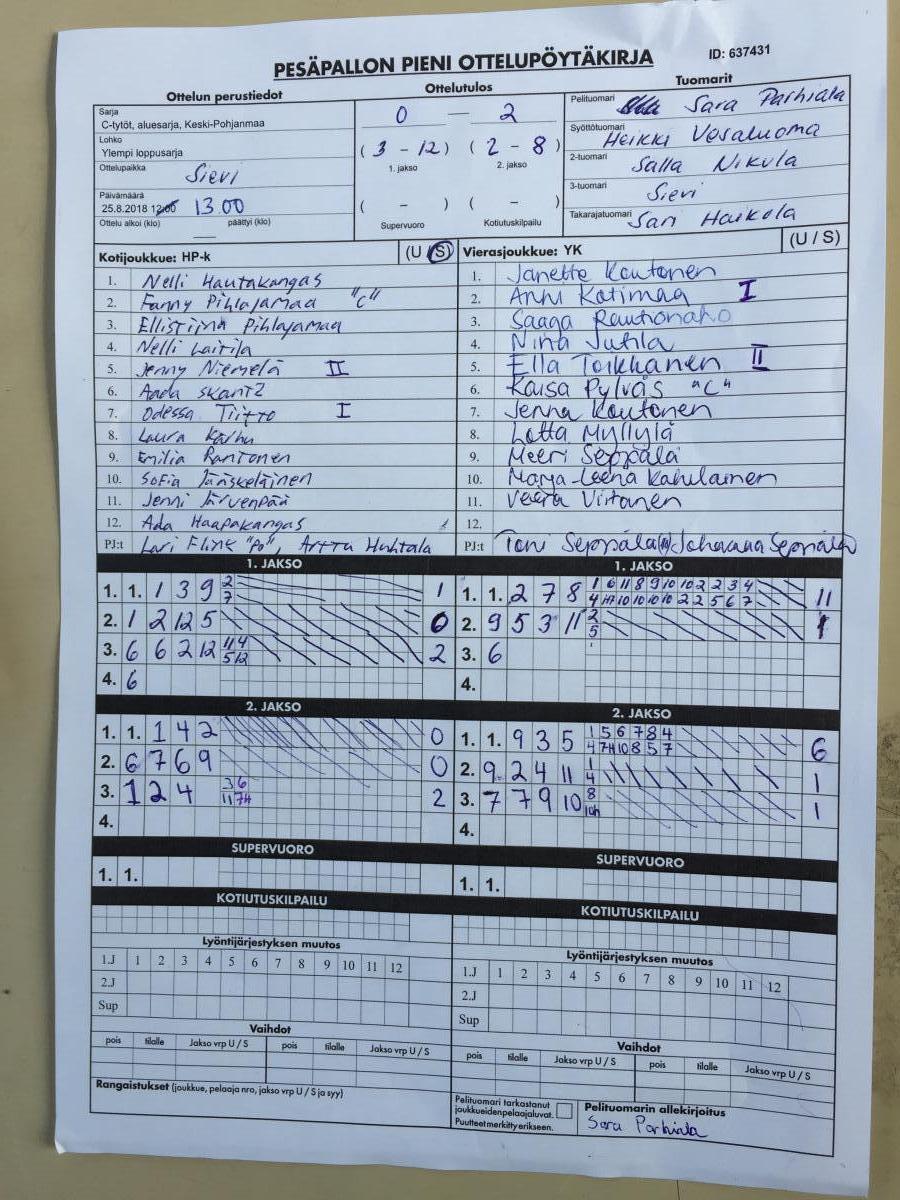 PESÄPALLON PIENI OTTELUPÖYTÄKIRJA
ID: 637431
Ottelun perustiedot
Sarja
C-tytöt, aluesarja, Keski-Pohjanmaa
Lohko
Ylempi loppusarja
Ottelupaikka Sievi
Päivämäärä
25.8.2018 12:00 13.00
Ottelu alkoi (klo) päättyi (klo)
Ottelutulos
0 — 2
( 3 - 12 ) ( 2 - 8 )
1. jakso 2. jakso
( - ) ( - )
Supervuoro Kotiutuskilpailu
Tuomarit
Pelituomari Sara Parhiala
Syöttötuomari Heikki Vesaluoma
2-tuomari Salla Nikula
3-tuomari Sievi
Takarajatuomari Sari Haikola
Kotijoukkue: HP-k (U / S)
1. Nelli Hautakangas
2. Fanny Pihlajamaa "C"
3. Ellistiina Pihlajamaa
4. Nelli Laitila
5. Jenny Niemelä II
6. Aada Skantz
7. Odessa Tiitto I
8. Laura Karhu
9. Emilia Rantonen
10. Sofia Jääskeläinen
11. Jenni Järvenpää
12. Ada Haapakangas
PJ:t Lari Flink "Po", Arttu Huhtala
Vierasjoukkue: YK (U / S)
1. Janette Koutonen
2. Anni Kotimaa I
3. Saaga Rautionaho
4. Nina Jutila
5. Ella Toikkanen II
6. Kaisa Pylväs "C"
7. Jenna Koutonen
8. Lotta Myllylä
9. Meeri Seppälä
10. Marja-Leena Kahulainen
11. Veera Virtanen
12.
PJ:t Toni Seppälä Johanna Seppälä
1. JAKSO
1. 1. 1 3 9 2 1
7
2. 1 2 12 5 0
3. 6 6 2 12 11 4 2
5 12
4. 6
1. JAKSO
1. 1. 2 7 8 1 6 11 8 9 10 10 2 2 3 4 11
4 7H 10 10 10 10 2 2 5 6 7
2. 9 5 3 11 2 1
5
3. 6
4.
2. JAKSO
1. 1. 1 4 2 0
2. 6 7 6 9 0
3. 1 2 4 3 6 2
11 7H
4.
2. JAKSO
1. 1. 9 3 5 1 5 6 7 8 4 6
4 7H 10 8 5 7
2. 9 2 4 11 1 1
4
3. 7 7 9 10 8 1
10H
4.
SUPERVUORO
1. 1.
KOTIUTUSKILPAILU
Lyöntijärjestyksen muutos
1.J 1 2 3 4 5 6 7 8 9 10 11 12
2.J
Sup
Vaihdot
pois tilalle Jakso vrp U / S pois tilalle Jakso vrp U / S
SUPERVUORO
1. 1.
KOTIUTUSKILPAILU
Lyöntijärjestyksen muutos
1.J 1 2 3 4 5 6 7 8 9 10 11 12
2.J
Sup
Vaihdot
pois tilalle Jakso vrp U / S pois tilalle Jakso vrp U / S
Rangaistukset (joukkue, pelaaja nro, jakso vrp U / S ja syy)
Pelituomari tarkastanut
joukkueidenpelaajaluvat.
Puutteet merkitty erikseen.
Pelituomarin allekirjoitus
Sara Parhiala